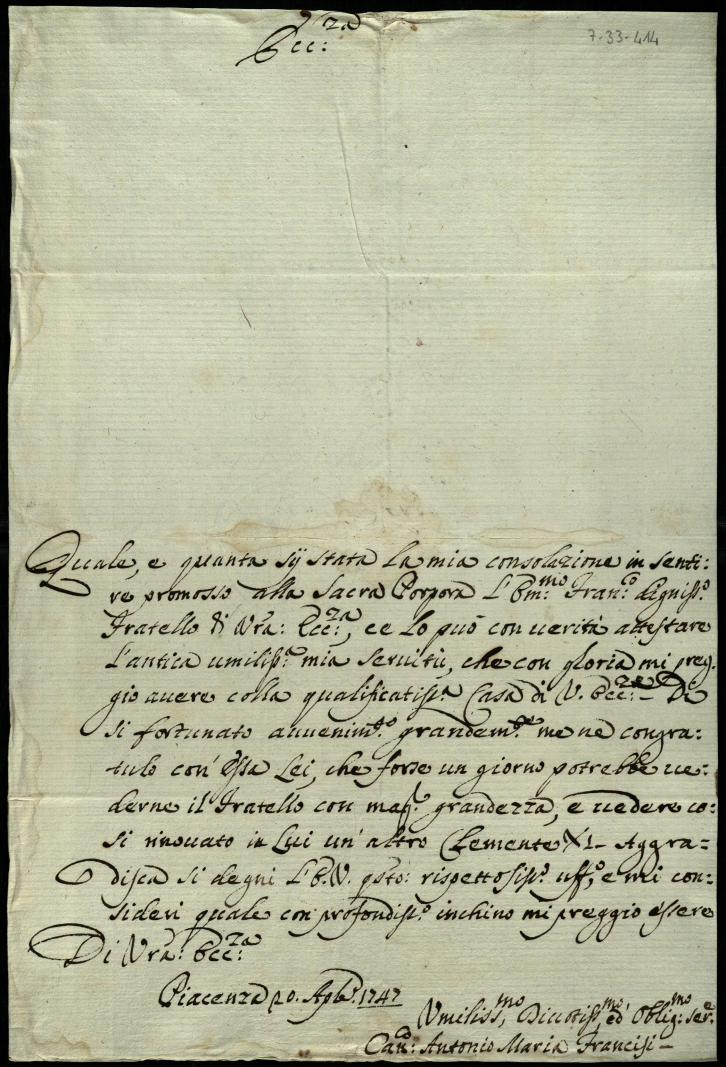 Ecc:za
7-33-414
Quale, e quanta sij stata la mia consolazione in senti:
re promosso alla Sacra Porpora L'Em:mo Fran:co digniss:o
Fratello di Vra: Ecc:za, ce lo può con verità attestare
l'antica umiliss:a mia servitù, che con gloria mi preg-
gio avere colla qualificatiss:a Casa di V. Ecc:za- Di
si fortunato avvenim:to grandem:te me ne congra-
tulo con Essa Lei, che forse un giorno potrebbe ve-
derne il Fratello con mag:r grandezza, e vedere co-
si rinovato in Lui un'altro Clemente XI- Aggra-
disca si degni L'E.V. qsto: rispettosiss:o uff:o, e mi con-
sideri quale con profondiss:o inchino mi preggio essere
Di Vra: Ecc:za
Piacenza 20. Aple: 1747
Umiliss:mo, Divotiss:mo, ed Oblig:mo Ser:e
Cau: Antonio Maria Francisi-